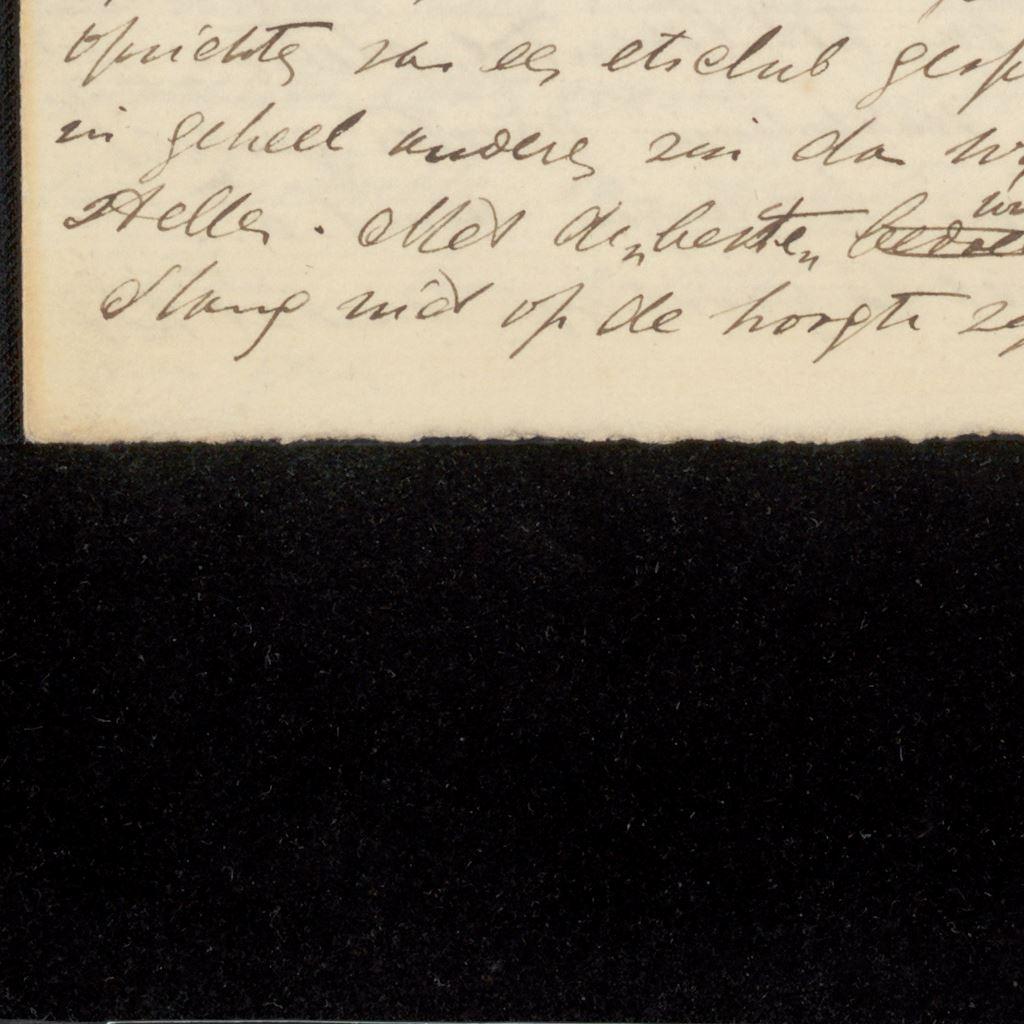 oprichten van een etsclub gesp
in geheel anderen zin dan
stellen. Met den besten
Stang niet op de hoogte